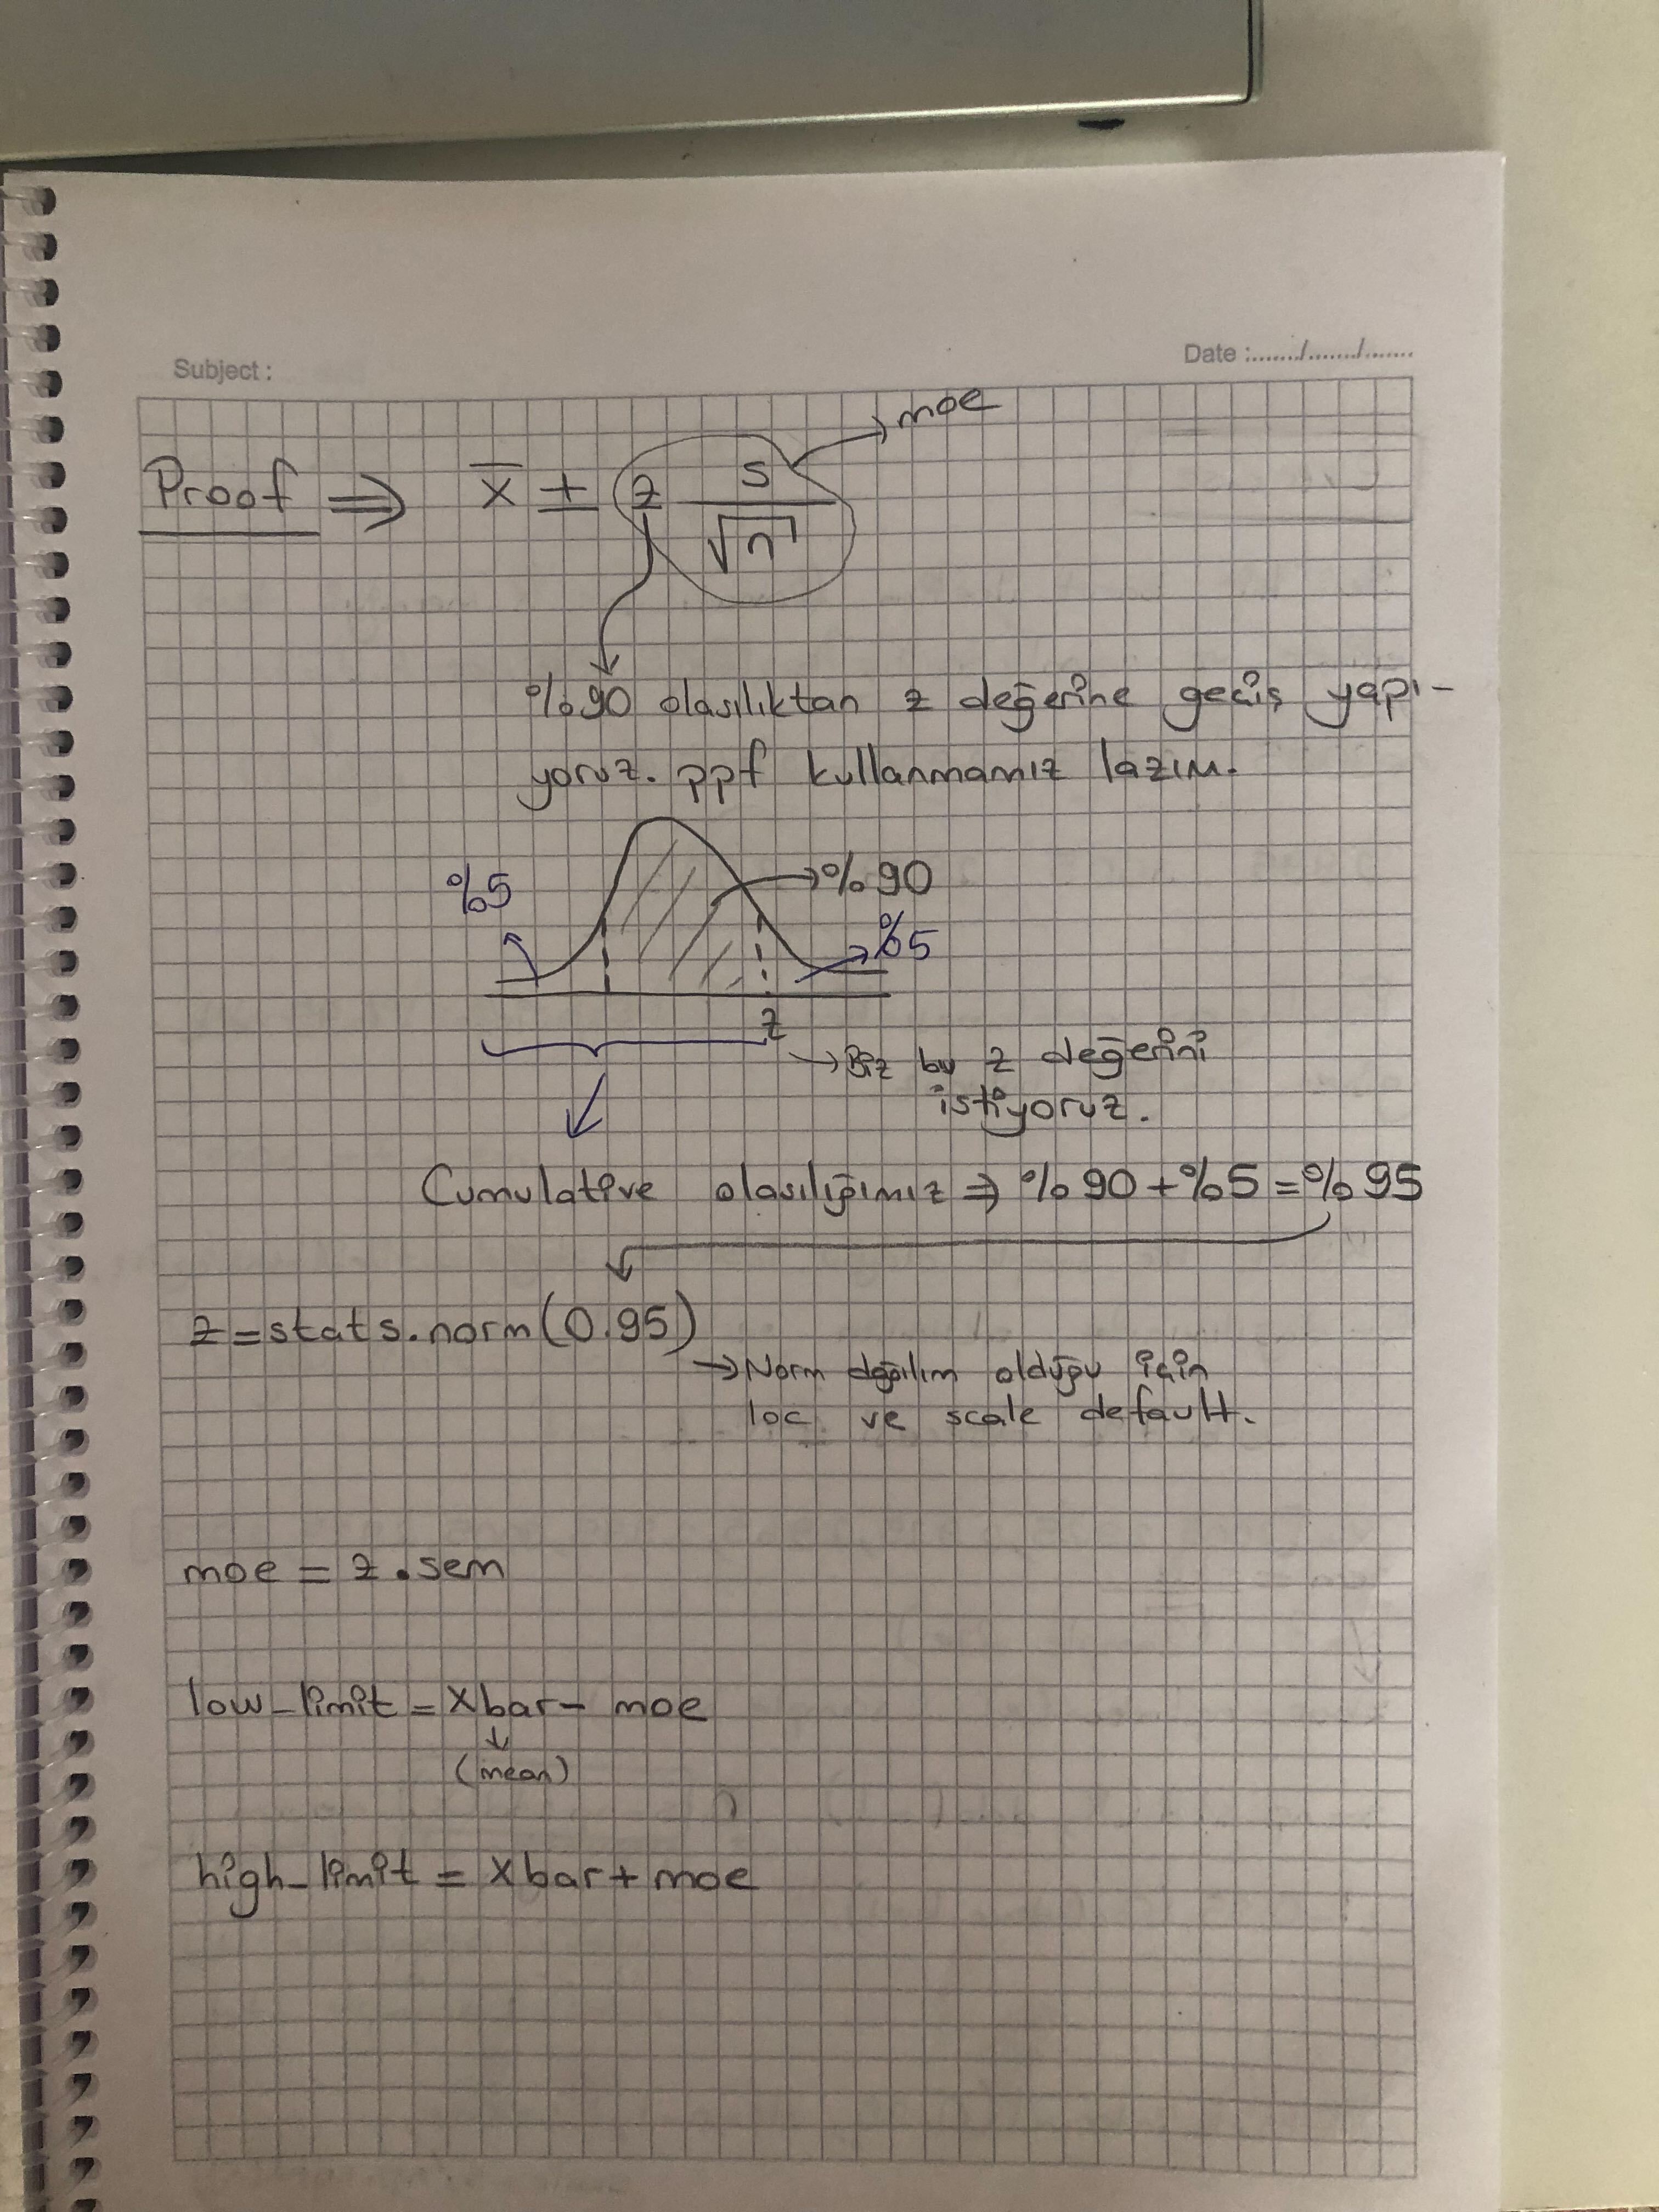 Subject :
Date :......./......./.......
moe
Proof ⇒ x̄ ± z s/√n
%90 olasılıktan z değerine geçiş yapı-
yoruz. ppf kullanmamız lazım.
%5
%90
%5
z
→ Biz bu z değerini
istiyoruz.
Cumulative olasılığımız ⇒ %90 + %5 = %95
z = stats.norm(0.95)
→ Norm dağılım olduğu için
loc ve scale default.
moe = z . sem
low_limit = xbar - moe
(mean)
high_limit = xbar + moe